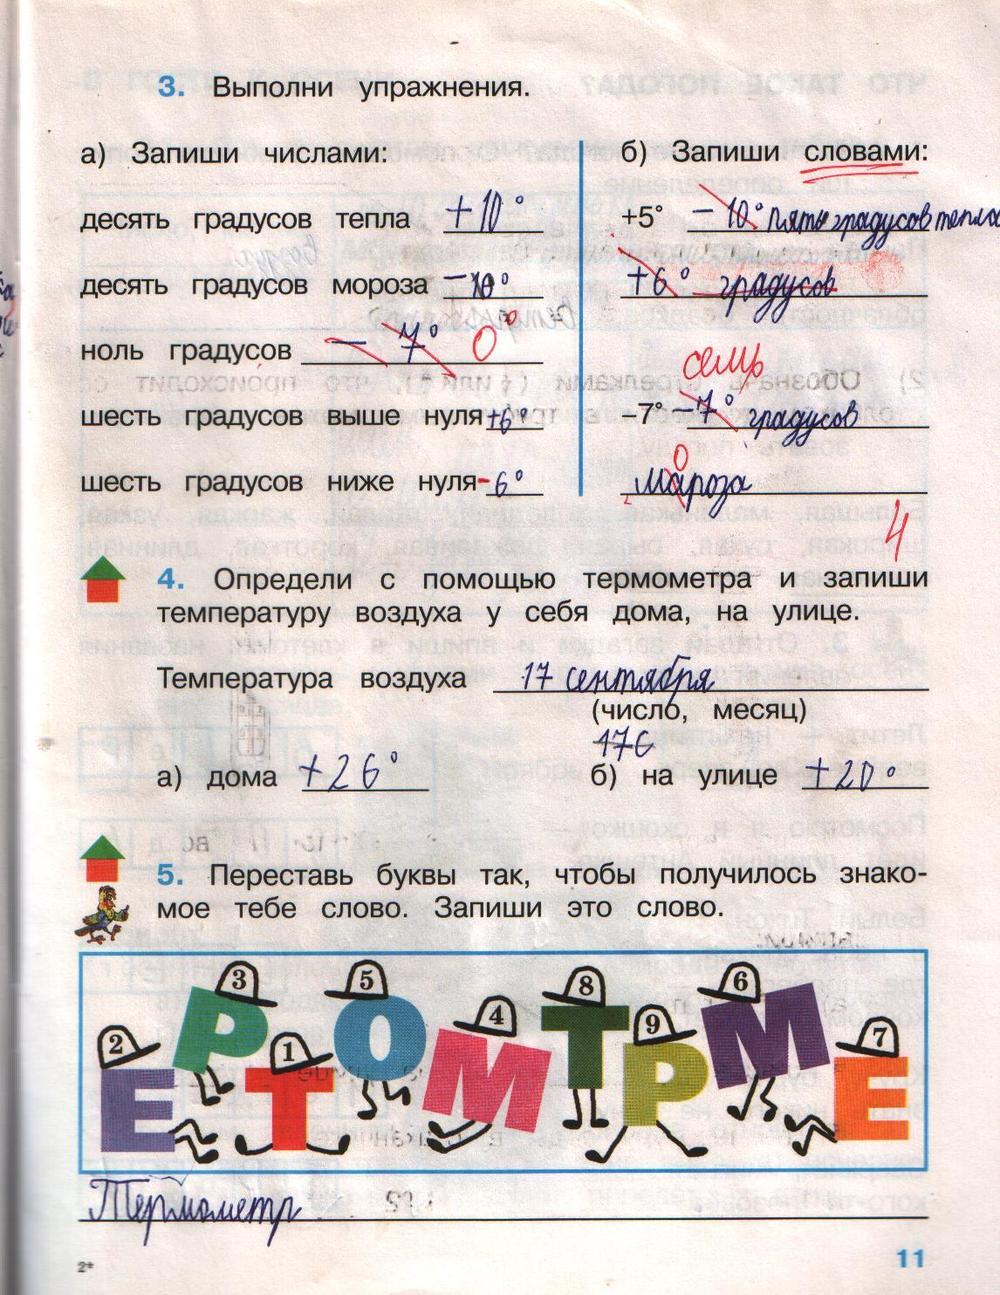 3. Выполни упражнения.
а) Запиши числами:
десять градусов тепла +10°
десять градусов мороза -10°
ноль градусов - 7° 0°
шесть градусов выше нуля +6°
шесть градусов ниже нуля -6°
б) Запиши словами:
+5° -10° пять градусов тепла
+6° градусов
семь
-7° 7° градусов
о
мароза
4
4. Определи с помощью термометра и запиши
температуру воздуха у себя дома, на улице.
Температура воздуха 17 сентября
(число, месяц)
17С
а) дома +26° б) на улице +20°
5. Переставь буквы так, чтобы получилось знако-
мое тебе слово. Запиши это слово.
2 3 1 5 4 8 9 6 7
Е Р Т О М Т Р М Е
Термометр
2*
11